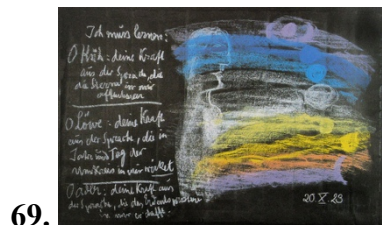 Ich muss lernen:
O Kuh: deine Kraft
aus der Sprache, die
die Sterne in mir
offenbaren
O Löwe: deine Kraft
aus der Sprache, die in
Jahr und Tag der
Umkreis in mir wirket
O adler: deine Kraft aus
der Sprache, die das
in mir er
20 X 23
69.